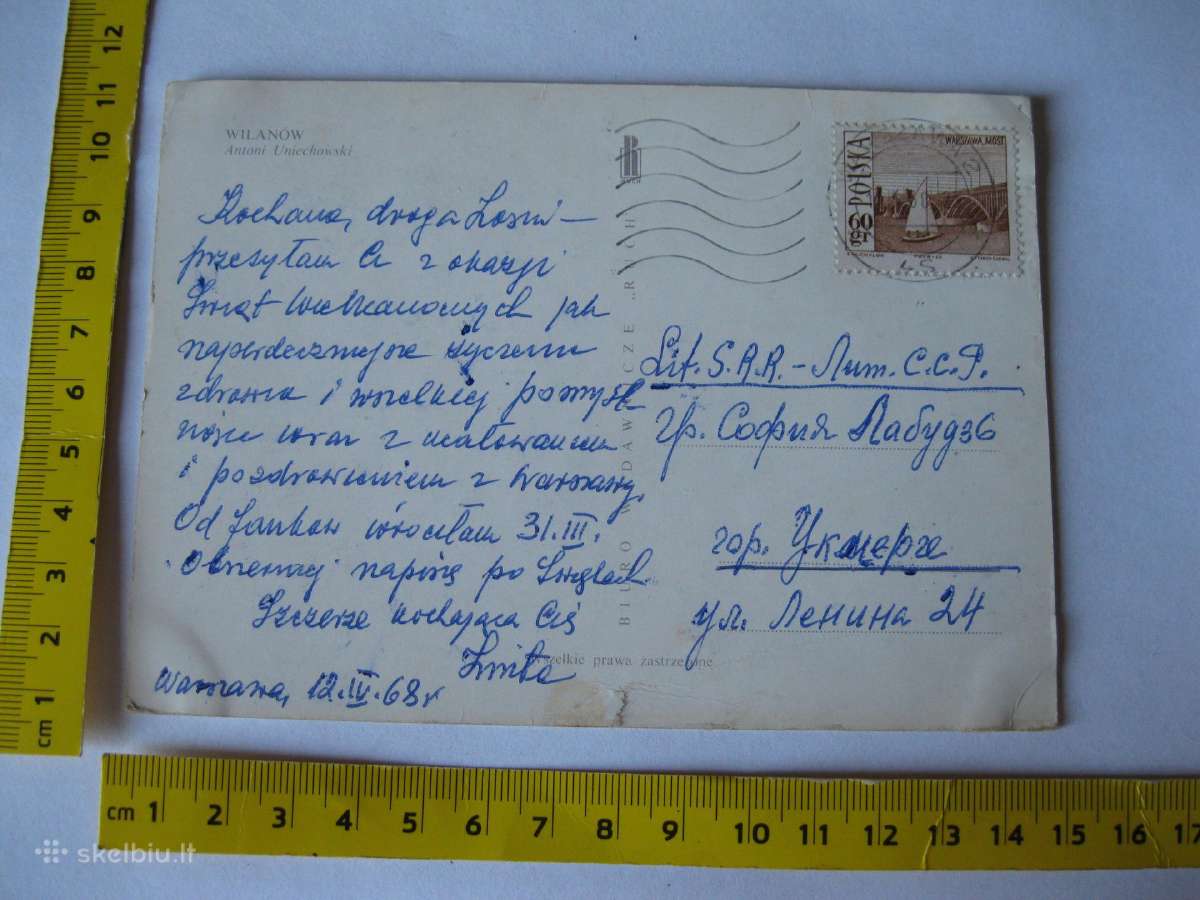 WILANÓW
Antoni Uniechowski
RUCH
BIURO WYDAWNICZE „RUCH"
POLSKA
60 gr
WARSZAWA, MOST
Kochana, droga Zosiu —
przesyłam Ci z okazji
Świąt Wielkanocnych jak
najserdeczniejsze życzenia
zdrowia i wszelkiej pomyśl-
ności wraz z ucałowaniem
i pozdrowieniem z Warszawy.
Od Janków wróciłam 31.III.
Obszerniej napiszę po Świętach
Szczerze kochająca Cię
Warszawa, 12.IV.68r
Wszelkie prawa zastrzeżone
Lit. S.R.R. - Лит. С.С.Р.
гр. София Лабудзь
гор. Укмерге
ул. Ленина 24
cm 1 2 3 4 5 6 7 8 9 10 11 12
cm 1 2 3 4 5 6 7 8 9 10 11 12 13 14 15 16 17
skelbiu.lt